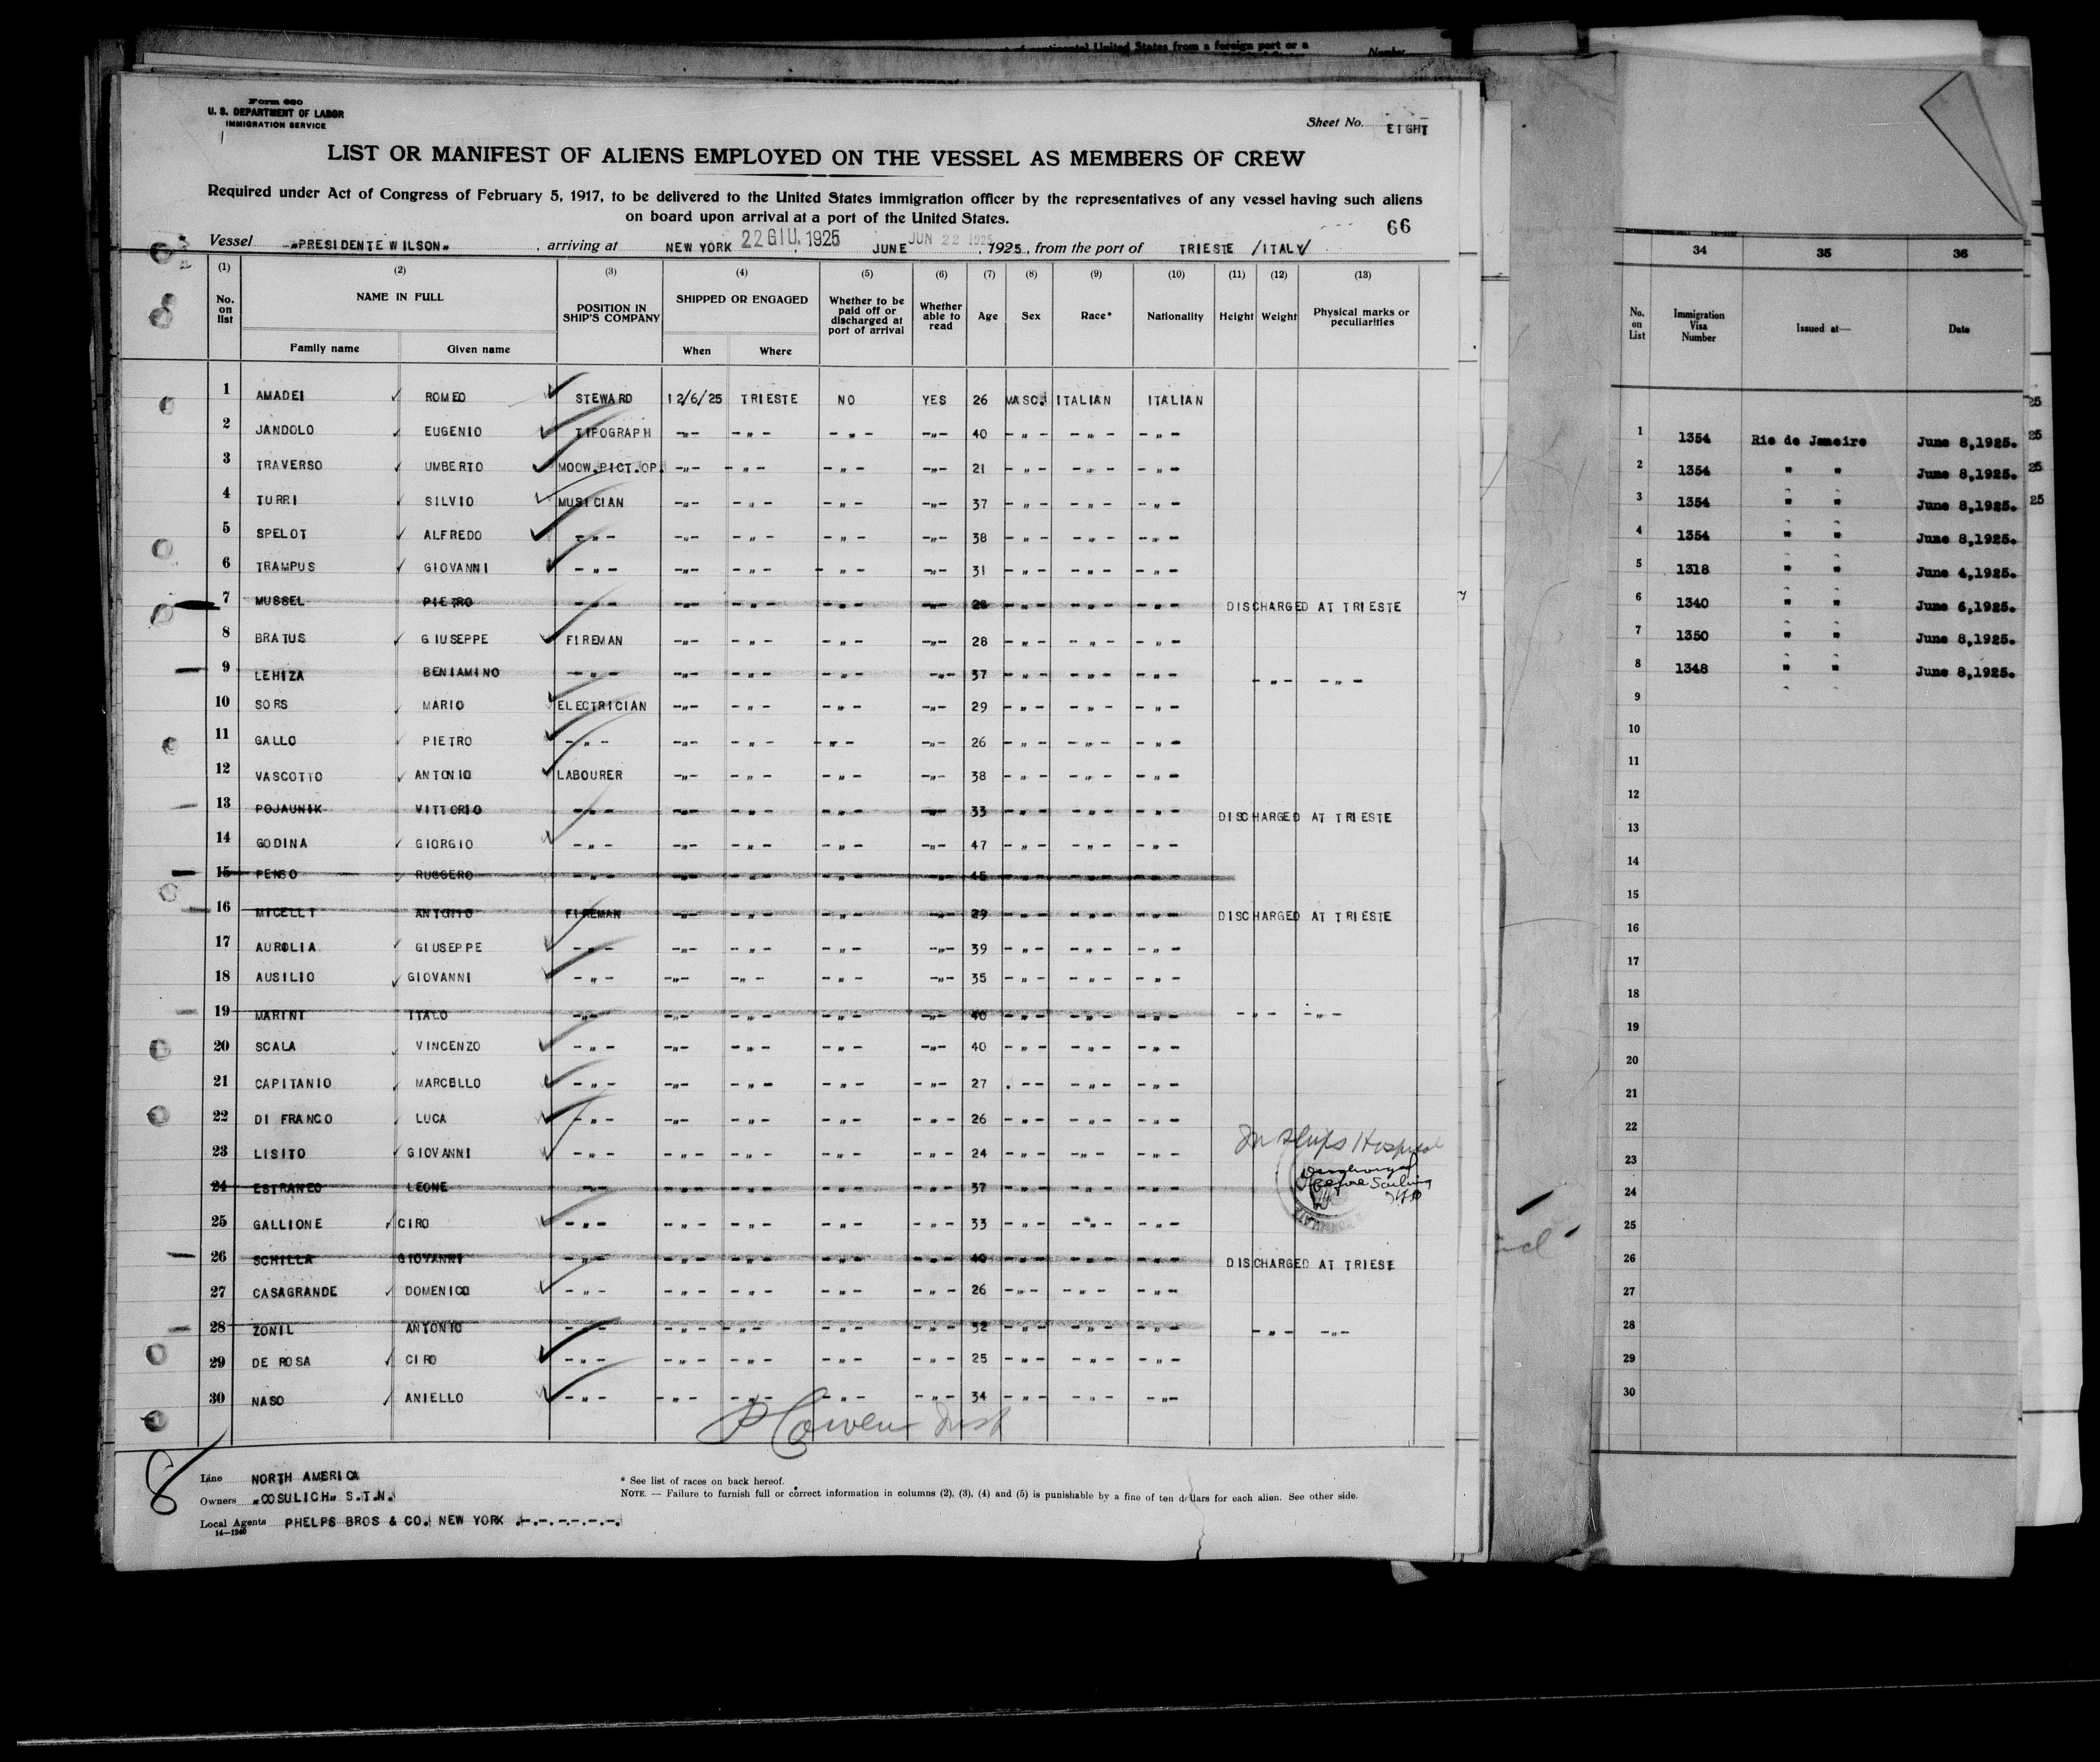 of continental United States from a foreign port or a
Number
Form 680
U. S. DEPARTMENT OF LABOR
IMMIGRATION SERVICE
Sheet No. EIGHT
LIST OR MANIFEST OF ALIENS EMPLOYED ON THE VESSEL AS MEMBERS OF CREW
Required under Act of Congress of February 5, 1917, to be delivered to the United States immigration officer by the representatives of any vessel having such aliens
on board upon arrival at a port of the United States.
66
Vessel „PRESIDENTE WILSON„ , arriving at NEW YORK 22 GIU. 1925 JUNE JUN 22 1925 , 1925 , from the port of TRIESTE /ITALY/
(1) (2) (3) (4) (5) (6) (7) (8) (9) (10) (11) (12) (13)
No. on list NAME IN FULL Family name Given name POSITION IN SHIP'S COMPANY SHIPPED OR ENGAGED When Where Whether to be paid off or discharged at port of arrival Whether able to read Age Sex Race* Nationality Height Weight Physical marks or peculiarities
1 AMADEI ✓ ROMEO ✓ STEWARD 12/6/25 TRIESTE NO YES 26 MASC. ITALIAN ITALIAN
2 JANDOLO ✓ EUGENIO ✓ TIPOGRAPH -„- -„- -„- -„- 40 -„- -„- -„-
3 TRAVERSO ✓ UMBERTO ✓ MOOW.PICT.OP. -„- -„- -„- -„- 21 -„- -„- -„-
4 TURRI ✓ SILVIO ✓ MUSICIAN -„- -„- -„- -„- 37 -„- -„- -„-
5 SPELOT ✓ ALFREDO ✓ -„- -„- -„- -„- -„- 38 -„- -„- -„-
6 TRAMPUS ✓ GIOVANNI ✓ -„- -„- -„- -„- -„- 31 -„- -„- -„-
7 MUSSEL PIETRO -„- -„- -„- -„- -„- 28 -„- -„- -„- DISCHARGED AT TRIESTE
8 BRATUS ✓ GIUSEPPE ✓ FIREMAN -„- -„- -„- -„- 28 -„- -„- -„-
9 LEHIZA BENIAMINO -„- -„- -„- -„- -„- 37 -„- -„- -„- -„- -„-
10 SORS ✓ MARIO ✓ ELECTRICIAN -„- -„- -„- -„- 29 -„- -„- -„-
11 GALLO ✓ PIETRO ✓ -„- -„- -„- -„- -„- 26 -„- -„- -„-
12 VASCOTTO ✓ ANTONIO ✓ LABOURER -„- -„- -„- -„- 38 -„- -„- -„-
13 POJAUNIK VITTORIO -„- -„- -„- -„- -„- 33 -„- -„- -„- DISCHARGED AT TRIESTE
14 GODINA ✓ GIORGIO ✓ -„- -„- -„- -„- -„- 47 -„- -„- -„-
15 PENSO ✓ RUGGERO -„- -„- -„- -„- -„- 45 -„- -„- -„-
16 MICELLI ANTONIO FIREMAN -„- -„- -„- -„- 29 -„- -„- -„- DISCHARGED AT TRIESTE
17 AUROLIA ✓ GIUSEPPE ✓ -„- -„- -„- -„- -„- 39 -„- -„- -„-
18 AUSILIO ✓ GIOVANNI ✓ -„- -„- -„- -„- -„- 35 -„- -„- -„-
19 MARINI ITALO -„- -„- -„- -„- -„- 40 -„- -„- -„- -„- -„-
20 SCALA ✓ VINCENZO ✓ -„- -„- -„- -„- -„- 40 -„- -„- -„-
21 CAPITANIO ✓ MARCELLO ✓ -„- -„- -„- -„- -„- 27 .-- -„- -„-
22 DI FRANCO ✓ LUCA ✓ -„- -„- -„- -„- -„- 26 -„- -„- -„-
23 LISITO ✓ GIOVANNI ✓ -„- -„- -„- -„- -„- 24 -„- -„- -„- In Ships Hospital
24 ESTRANEO LEONE -„- -„- -„- -„- -„- 37 -„- -„- -„- Discharged before Sailing
25 GALLIONE ✓ CIRO ✓ -„- -„- -„- -„- -„- 33 -„- -„- -„-
26 SCHILLA GIOVANNI -„- -„- -„- -„- -„- 40 -„- -„- -„- DISCHARGED AT TRIESE
27 CASAGRANDE ✓ DOMENICO ✓ -„- -„- -„- -„- -„- 26 -„- -„- -„-
28 ZONIL ANTONIO -„- -„- -„- -„- -„- 32 -„- -„- -„- -„- -„-
29 DE ROSA ✓ CIRO ✓ -„- -„- -„- -„- -„- 25 -„- -„- -„-
30 NASO ✓ ANIELLO ✓ -„- -„- -„- -„- -„- 34 -„- -„- -„-
8
Line NORTH AMERICA
Owners „COSULICH„ S.T.N.
Local Agents PHELPS BROS & CO. NEW YORK .-.-.-.-.-.
14—1240
* See list of races on back hereof.
NOTE. — Failure to furnish full or correct information in columns (2), (3), (4) and (5) is punishable by a fine of ten dollars for each alien. See other side.
34 35 36
No. on List Immigration Visa Number Issued at— Date
1 1354 Rio de Janeiro June 8,1925.
2 1354 " " June 8,1925.
3 1354 " " June 8,1925.
4 1354 " " June 8,1925.
5 1318 " " June 4,1925.
6 1340 " " June 6,1925.
7 1350 " " June 8,1925.
8 1348 " " June 8,1925.
9
10
11
12
13
14
15
16
17
18
19
20
21
22
23
24
25
26
27
28
29
30
25
25
25
25